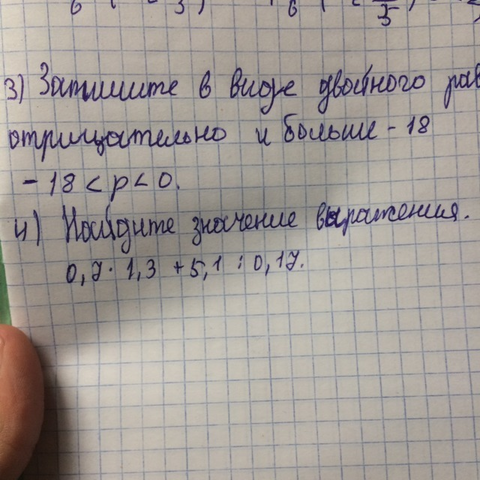 3) Запишите в виде двойного
отрицательно и больше - 18
- 18 < p < 0.
4) Найдите значение выражения.
0,7 · 1,3 + 5,1 : 0,17.